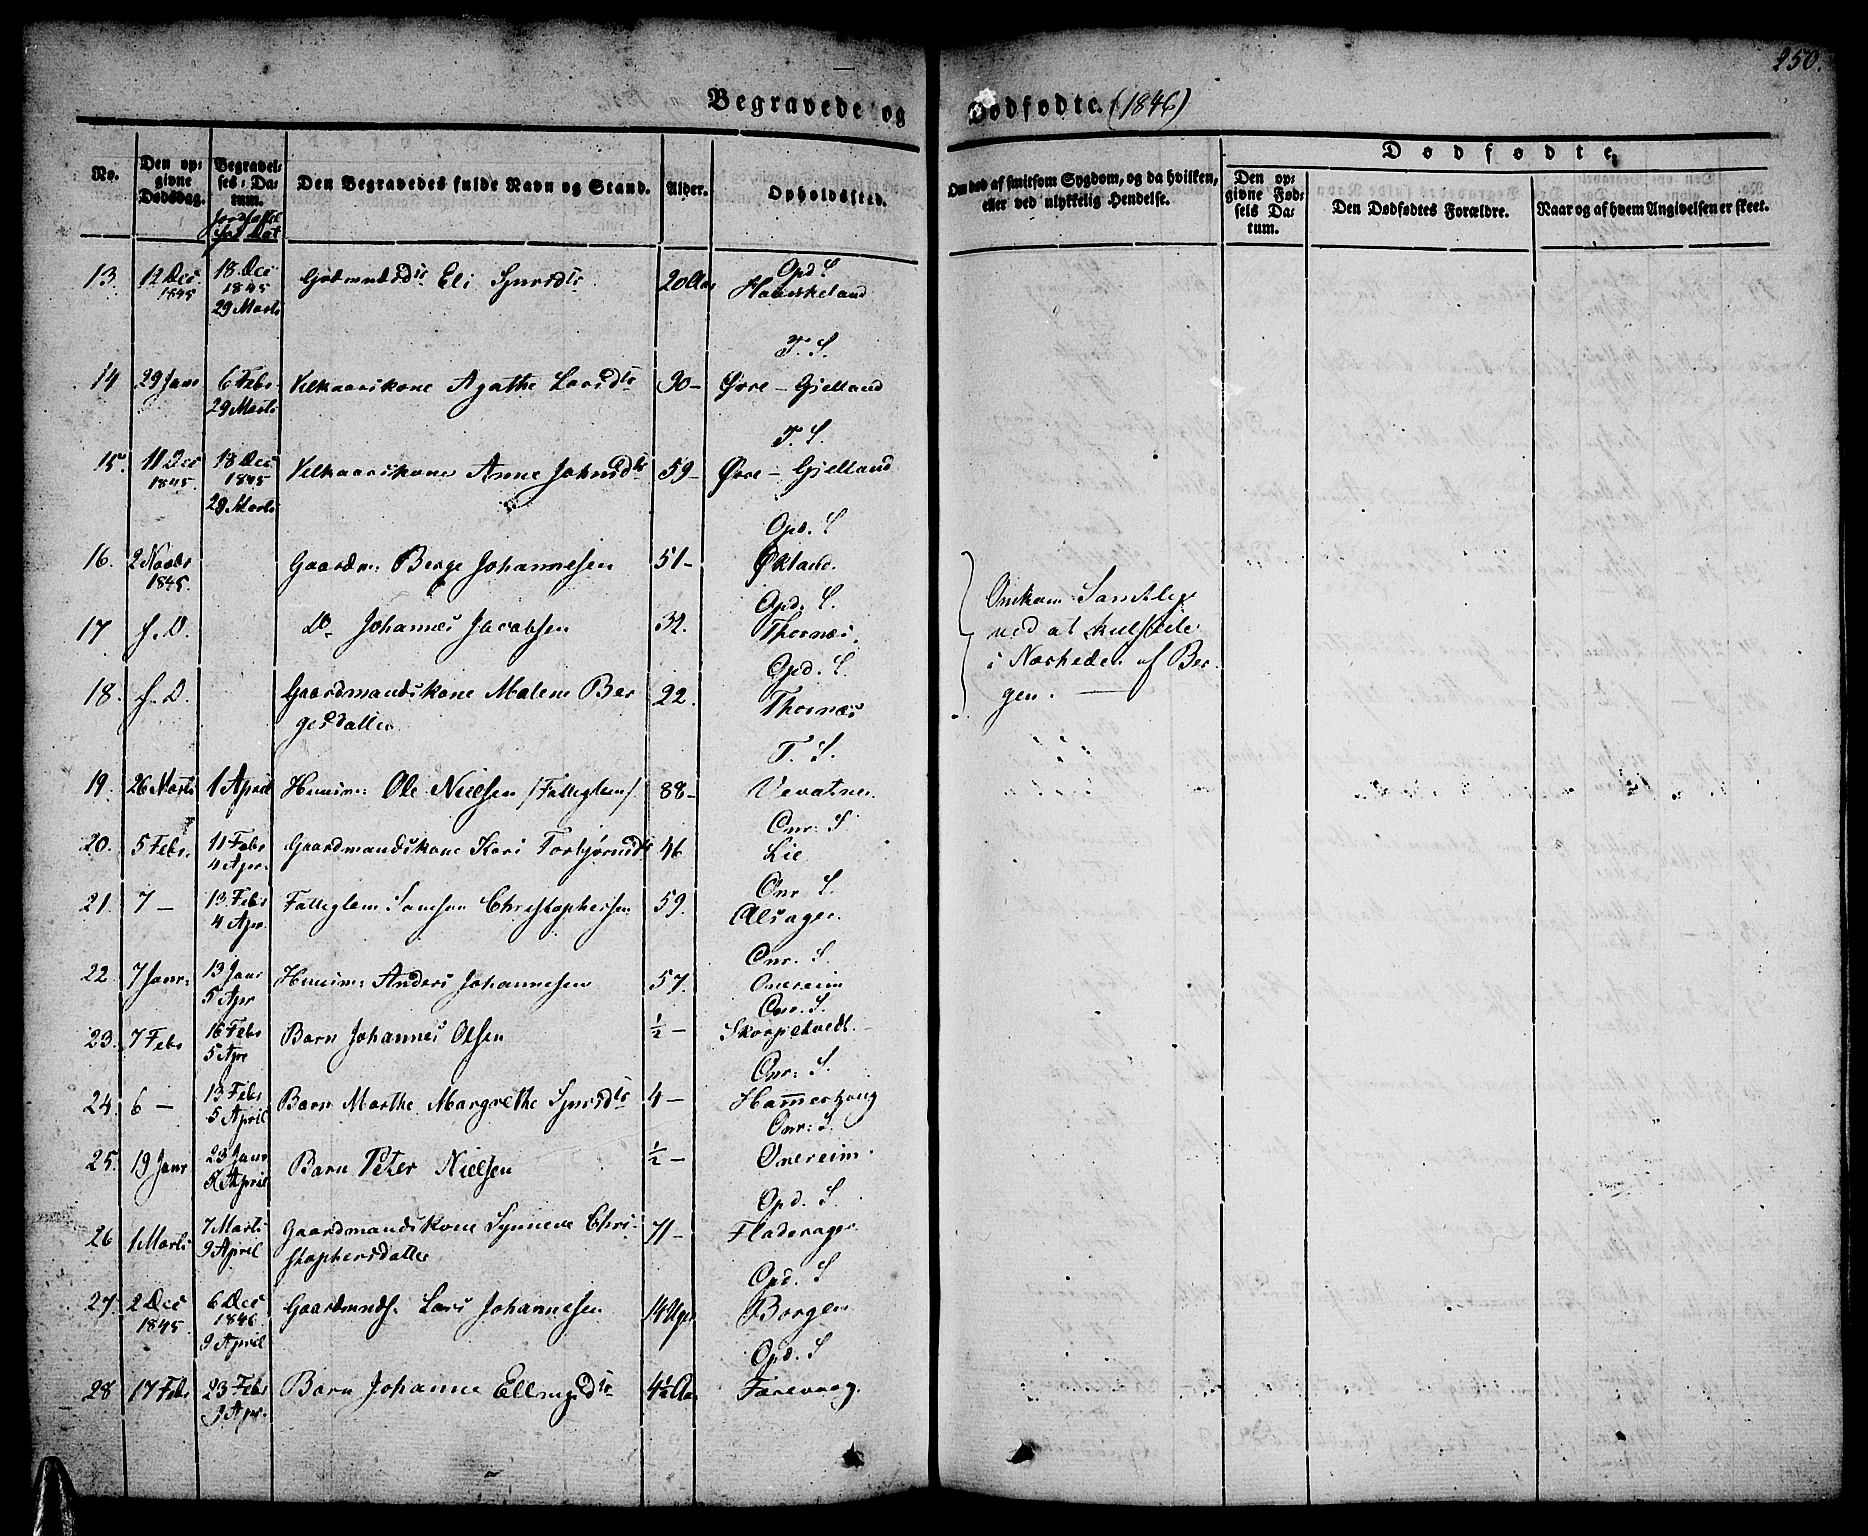 250.
Begravede og Dødfødte. (1846)
No.
Den opgivne Dødsdag.
Begravelses-Datum.
Jordfæstelses Dat
Den Begravedes fulde Navn og Stand.
Alder.
Opholdssted.
Om død af smitsom Sygdom, og da hvilken, eller ved ulykkelig Hendelse.
Dødfødte.
Den opgivne Fødsels Datum.
Den Dødfødtes Forældre.
Naar og af hvem Angivelsen er skeet.
13. 12 Dec 1845 18 Dec 1845 29 Marts Gdmndsdtr Eli Sjursdtr 20 Aar Opd. S. Haukeland
14 29 Janr 6 Febr 29 Marts Velkaarskone Agathe Larsdtr 30 – T. S. Øvre – Gjelland
15. 11 Dec 1845. 18 Dec 1845 29 Marts Velkaarskone Anne Johnsdtr 59 – T. S. Øvre – Gjelland
16. 2 Novbr 1845. Gaardm: Berge Johannesen 51 – Opd. S. Økland.
17 s. D. Do Johannes Jacobsen 32. Opd. S. Thornæs.
18. s. D. Gaardmandskone Malene Ber
gesdatter 22. Opd. S. Thornæs
Omkom Samtlige
ved at kulseile
i Nærheden af Ber
gen.
19. 26 Marts 1 April Huusm: Ole Nielsen /Fattiglem/. 88 – T. S. Vevatne.
20. 5 Febr. 11 Febr 4 Apr. Gaardmandskone Kari Torbjørnsdtr 46 Onr: S Lie
21. 7 – 13 Febr 4 Apr. Fattiglem Samson Christophersen 59. Onr S. Alsager.
22. 7 Janr. 13 Janr 5 Apr Huusm: Anders Johannesen 57. Onr. S. Onereim
23. 7 Febr 16 Febr 5 Apr Barn Johannes Olsen ½ – Onr. S. Skorpetvedt.
24. 6 – 13 Febr 5 April Barn Marthe Margrethe Sjursdtr 4 – Onr: S. Hammerhoug
25. 19 Janr 23 Janr April Barn Peter Nielsen ½ – Onr: S. Onereim.
26 1 Marts 7 Marts 9 April Gaardmandskone Synneve Chri-
stophersdatter 71 – Opd. S. Fladerager
27. 2 Dec 1845. 6 Dec 1846. 9 April Gaardmnds. Lars Johannesen 14 Uger Opd. S Borgen
28 17 Febr 23 Febr 9 Apr. Barn Johanne Ellingsdtr 4½ Aar Opd. S Færevaag.